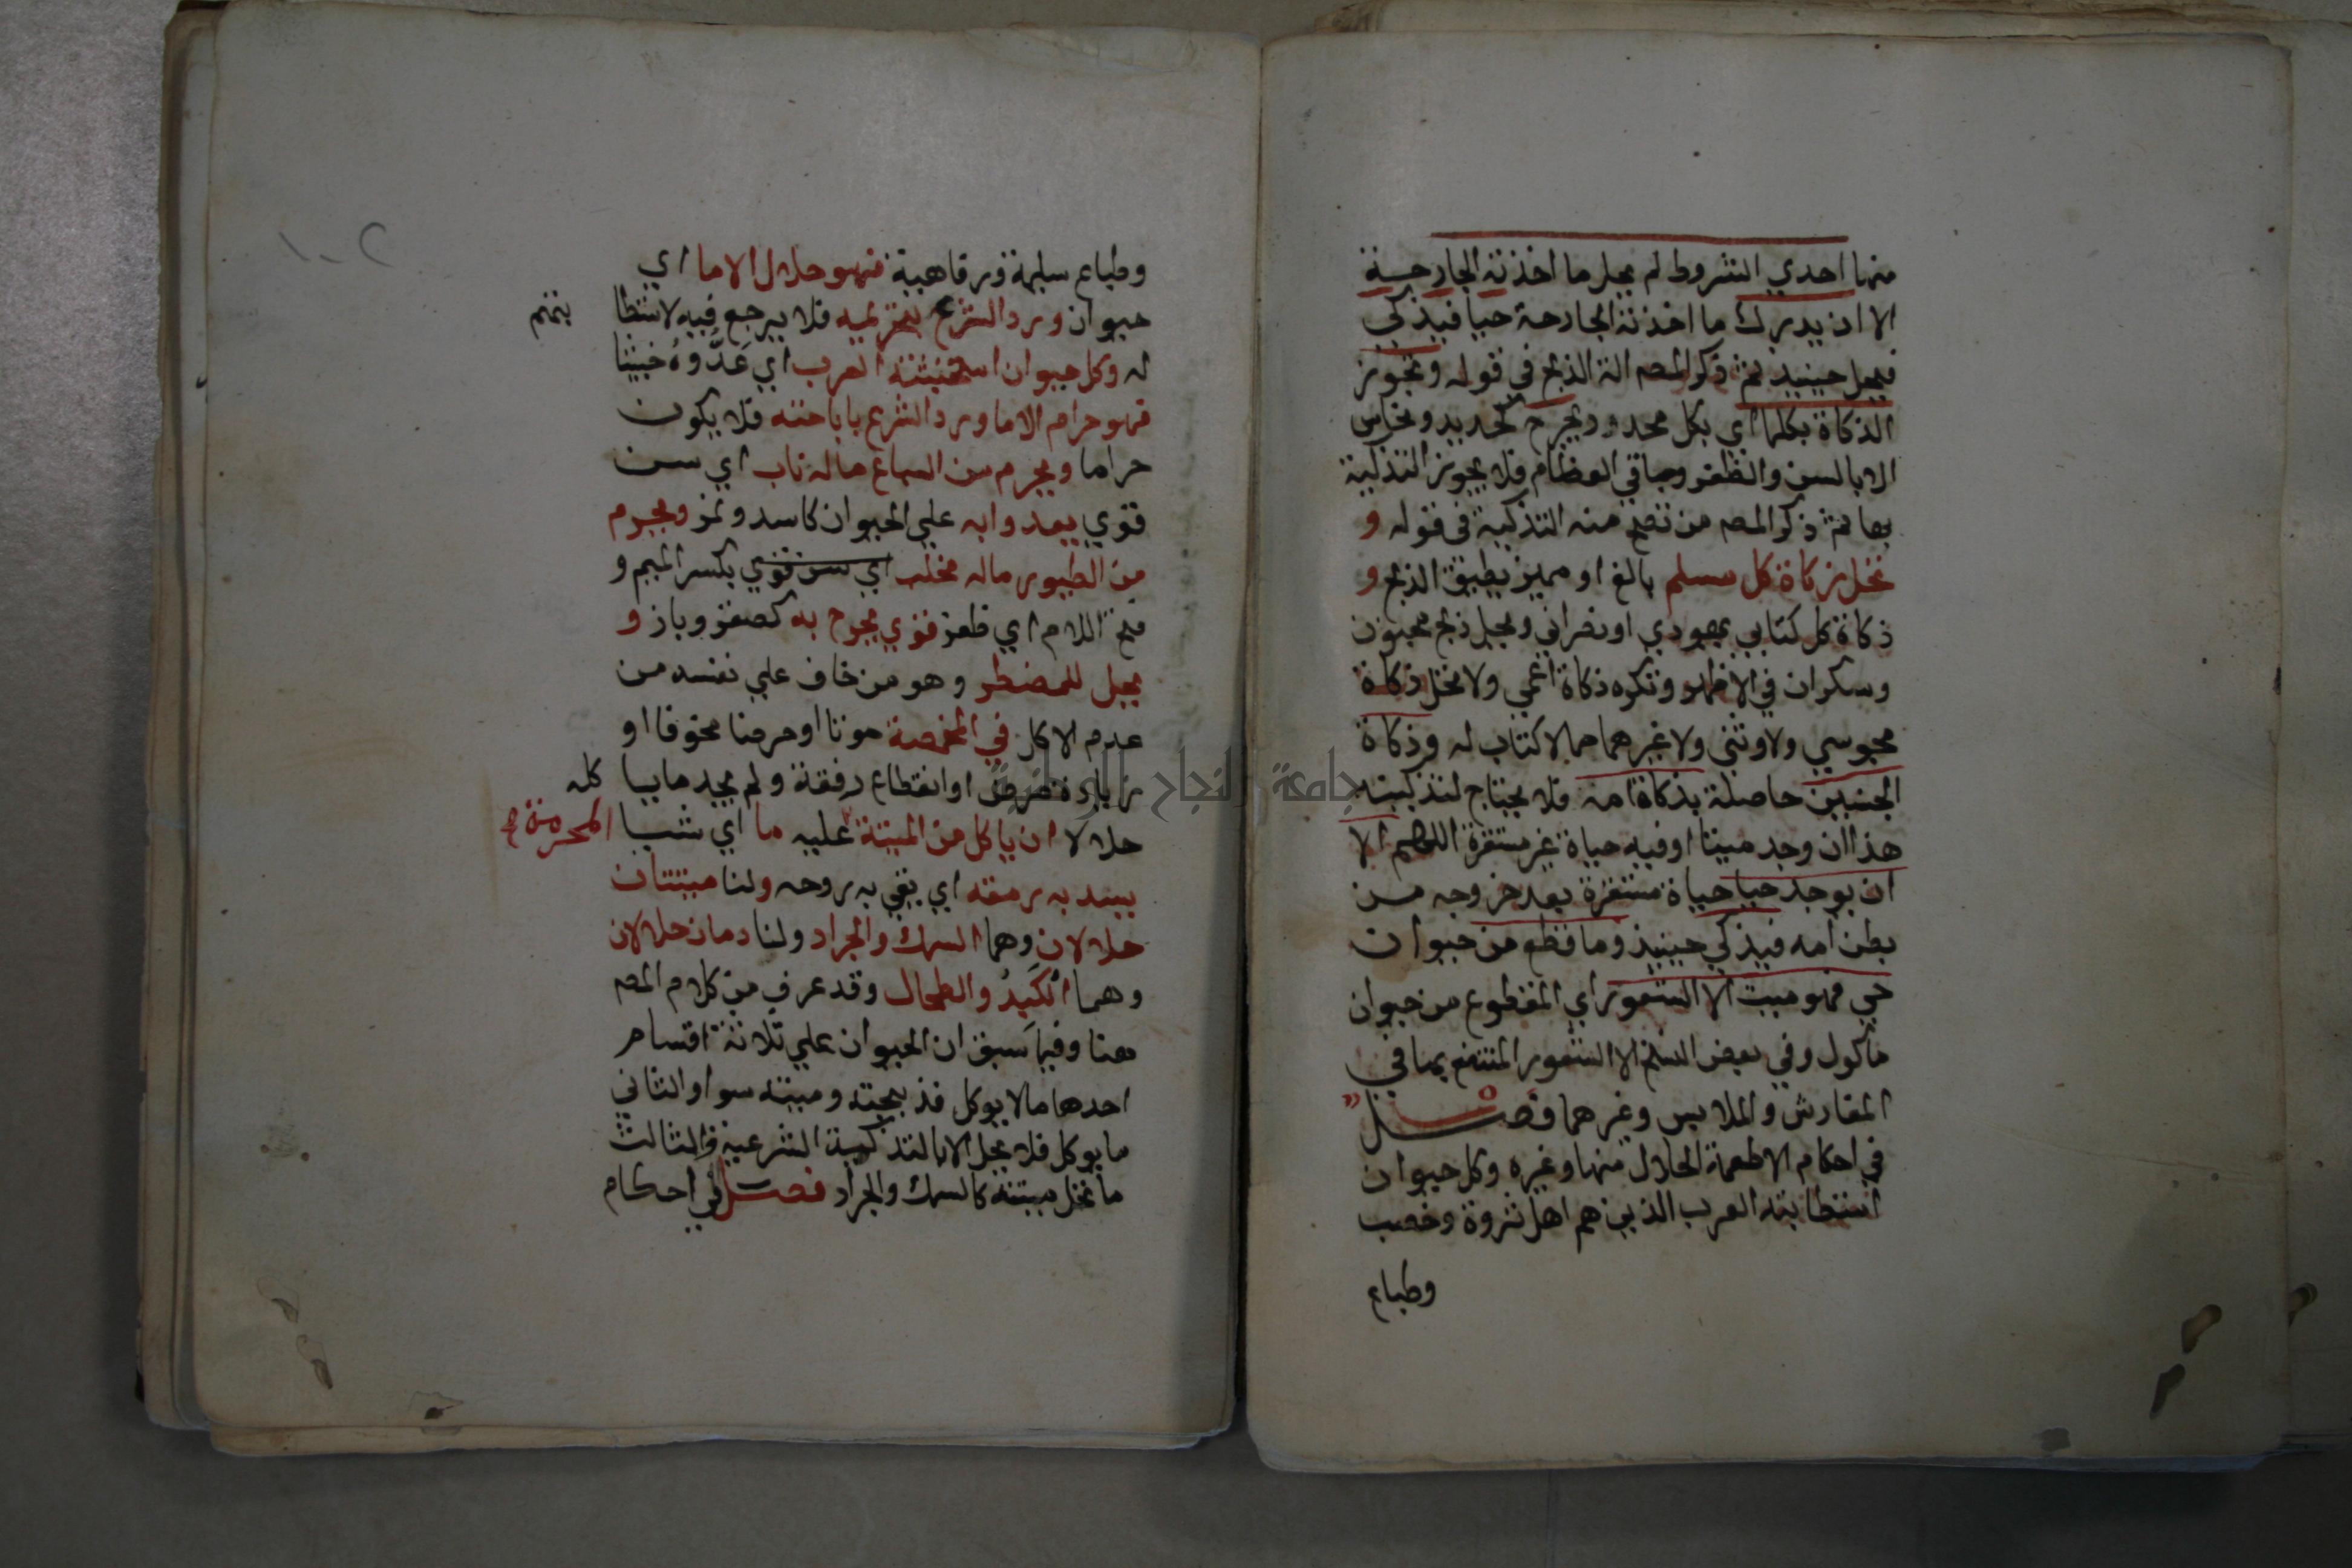 منها احدي الشروط لم يحل ما اخذته الجارحة
الا ان يدرك ما اخذته الجارحة حيا فيذكي
فيحل حينيذ ثم ذكر المصـ الة الذبح في قوله وتجوز
الذكاة بكلما اي بكل محدد ويجرح كحديد ونحاس
الا بالسن والظفر وباقي العظام فلا يجوز التذكية
بها ثم ذكر المصـ من تصح منه التذكية في قوله و
تحل زكاة كل مسلم بالغ او مميز يطيق الذبح و
ذكاة كل كتابي يهودي او نصراني ويحل ذبح مجنون
وسكران في الاظهر وتكره ذكاة اعمي ولا تحل ذكاة
مجوسي ولا وثني ولا غيرهما مما لا كتاب له وذكاة
الجنين حاصلة بذكاة امه فلا يحتاج لتذكيته
هذا ان وجد ميتا او فيه حياة غير مستقرة اللهم الا
ان يوجد حيا حياة مستقرة بعد خروجه من
بطن امه فيذكي حينيذ وما قطع من حيوان
حي فهو ميت الا الشعور اي المقطوع من حيوان
ماكول وفي بعض النسخ الا الشعور المنتفع بها في
المفارش والملابس وغيرهما فصل
في احكام الاطعمة الحلال منها وغيره وكل حيوان
استطابته العرب الذين هم اهل ثروة وخصب
وطباع
وطباع سليمة ورفاهية فهو حلال الا ما اي
حيوان ورد الشرع بتحريمه فلا يرجع فيه لاستطا
بتهم
له وكل حيوان استخبثته العرب اي عَدُّوهُ خبيثا
فهو حرام الا ما ورد الشرع باباحته فلا يكون
حراما ويحرم من السباع ما له ناب اي سن
قوي يعدوا به علي الحيوان كاسد ونمر ويحرم
من الطيور ما له مخلب اي سن قوي بكسر الميم و
فتح اللام اي ظفر قوي يجرح به كصقر وباز و
يحل للمضطر وهو من خاف علي نفسه من
عدم الاكل في المخمصة موتا او مرضا مخوفا او
زيادة مرض او انقطاع رفقة ولم يجد ما ياكله
حلالا ان ياكل من الميتة المحرمة عليه ما اي شيا
يسد به رمقه اي بقي به روحه ولنا ميتتان
حلالان وهما السمك والجراد ولنا دمان حلالان
وهما الكَبِدُ والطحال وقد عرف من كلام المصـ
هنا وفيما سبق ان الحيوان علي ثلاثة اقسام
احدها ما لا يوكل فذبيحته وميتته سوا والثاني
ما يوكل فلا يحل الا بالتذكية الشرعية والثالث
ما تحل ميتته كالسمك والجراد فصل في احكام
١٠٢
جامعة النجاح الوطنية